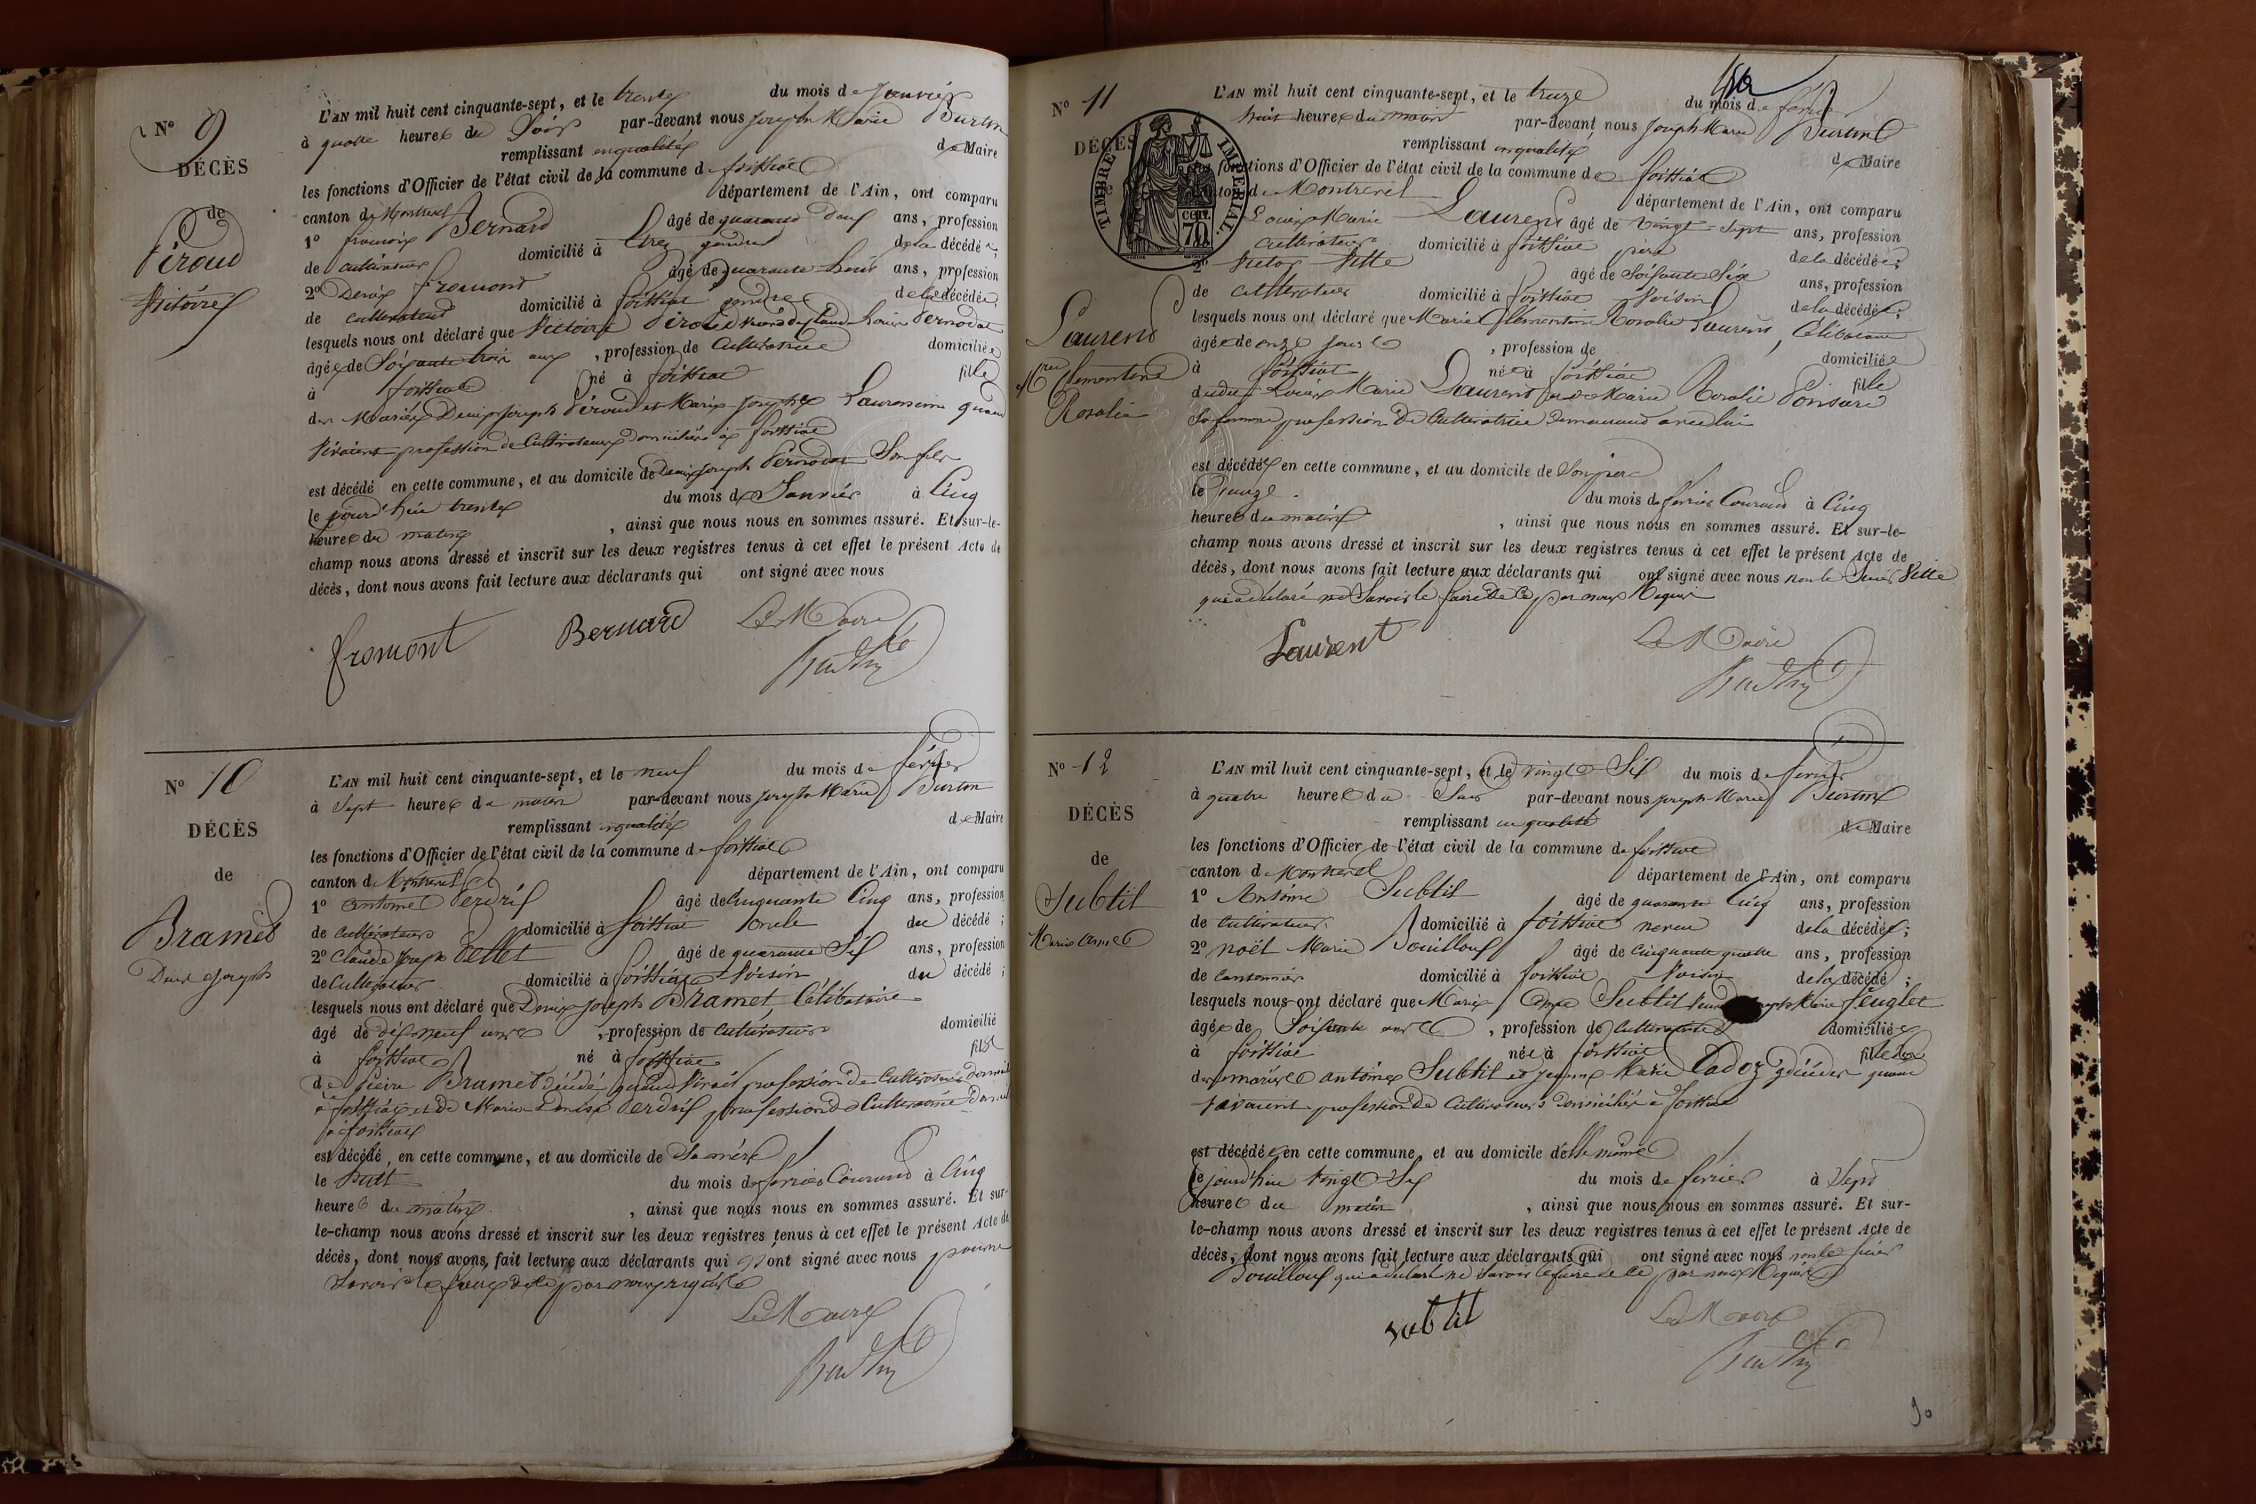 N° 9
DÉCÈS
de
Péroud
Victoire
L'AN mil huit cent cinquante-sept, et le trente du mois de Janvier
à quatre heures du Soir par-devant nous Joseph Marie
remplissant en qualité de Maire
les fonctions d'Officier de l'état civil de la commune de foissiat
canton de Montrevel département de l'Ain, ont comparu
1° françois Bernard âgé de quarante deux ans, profession
de cultivateur domicilié à gendre de la décédée;
2° Denis fromont âgé de quarante huit ans, profession
de cultivateur domicilié à foissiat gendre de la décédée;
lesquels nous ont déclaré que Victoire Péroud Louis Pernodat
âgée de Soixante trois ans, profession de Cultivatrice domiciliée
à foissiat né à foissiat fille
des Mariés Denis Joseph Péroud et Marie Josephe Laurencin quand
vivaient profession de Cultivateurs domiciliés à foissiat
est décédé en cette commune, et au domicile de Denis Joseph Pernodat Son fils
le jourd'hui trente du mois de Janvier à Cinq
heures du matin, ainsi que nous nous en sommes assuré. Et sur-le-
champ nous avons dressé et inscrit sur les deux registres tenus à cet effet le présent Acte de
décès, dont nous avons fait lecture aux déclarants qui ont signé avec nous
fromont Bernard Le Maire
N° 10
DÉCÈS
de
Bramet
Denis Joseph
L'AN mil huit cent cinquante-sept, et le neuf du mois de février
à Sept heures du matin par-devant nous Joseph Marie
remplissant en qualité de Maire
les fonctions d'Officier de l'état civil de la commune de foissiat
canton de Montrevel département de l'Ain, ont comparu
1° antoine Perdrix âgé de Cinquante Cinq ans, profession
de cultivateur domicilié à foissiat oncle du décédé;
2° Claude Joseph Pellet âgé de quarante Six ans, profession
de Cultivateur domicilié à foissiat Voisin du décédé;
lesquels nous ont déclaré que Denis Joseph Bramet, Célibataire
âgé de dix neuf ans, profession de cultivateur domicilié
à foissiat né à foissiat fils
de Pierre Bramet décédé quand vivait profession de Cultivateur
à foissiat et de Marie Denise Perdrix profession de Cultivatrice
à foissiat
est décédé en cette commune, et au domicile de Sa mère
le huit du mois de février Courant à Cinq
heures du matin, ainsi que nous nous en sommes assuré. Et sur-
le-champ nous avons dressé et inscrit sur les deux registres tenus à cet effet le présent Acte de
décès, dont nous avons fait lecture aux déclarants qui n'ont signé avec nous pour ne
Savoir le faire de ce par nous requis
Le Maire
N° 11
DÉCÈS
TIMBRE IMPÉRIAL.
CENT. 70
Laurent
Clementine
Rosalie
L'AN mil huit cent cinquante-sept, et le treize du mois de février
à huit heures du matin par-devant nous Joseph Marie
remplissant en qualité de Maire
les fonctions d'Officier de l'état civil de la commune de foissiat
canton de Montrevel département de l'Ain, ont comparu
Louis Marie Laurent âgé de vingt-sept ans, profession
cultivateur domicilié à foissiat père de la décédée;
2° âgé de Soixante Six ans, profession
de cultivateur domicilié à foissiat Voisin de la décédée;
lesquels nous ont déclaré que Marie Clémentine Rosalie Laurent, Célibataire
âgée de onze jours, profession de domiciliée
à foissiat née à foissiat fille
dudit Louis Marie Laurent et de Marie Rosalie Ponsard
Sa femme profession de Cultivatrice demeurant avec lui
est décédée en cette commune, et au domicile de Son père
le du mois de février Courant à Cinq
heures du matin, ainsi que nous nous en sommes assuré. Et sur-le-
champ nous avons dressé et inscrit sur les deux registres tenus à cet effet le présent Acte de
décès, dont nous avons fait lecture aux déclarants qui ont signé avec nous non le Sieur
qui a déclaré ne Savoir le faire de ce par nous Requis
Laurent Le Maire
N° 12
DÉCÈS
de
Subtil
Marie
L'AN mil huit cent cinquante-sept, et le vingt Six du mois de février
à quatre heures du Soir par-devant nous Joseph Marie
remplissant en qualité de Maire
les fonctions d'Officier de l'état civil de la commune de foissiat
canton de Montrevel département de l'Ain, ont comparu
1° Antoine Subtil âgé de quarante Cinq ans, profession
de Cultivateur domicilié à foissiat neveu de la décédée;
2° noël Marie Bouilloux âgé de Cinquante quatre ans, profession
de Cantonnier domicilié à foissiat Voisin de la décédée;
lesquels nous ont déclaré que Marie Subtil Marie féuglet
âgée de Soixante ans, profession de Cultivatrice domiciliée
à foissiat née à foissiat fille
des mariés antoine Subtil et jeanne Marie Cadoz décédés quand
vivaient profession de Cultivateurs domiciliés à foissiat
est décédée en cette commune, et au domicile d'elle même
le jourd'hui vingt Six du mois de février à Sept
heures du matin, ainsi que nous nous en sommes assuré. Et sur-
le-champ nous avons dressé et inscrit sur les deux registres tenus à cet effet le présent Acte de
décès, dont nous avons fait lecture aux déclarants qui ont signé avec nous non le Sieur
Bouilloux qui a déclaré ne Savoir le faire de ce par nous Requis
subtil Le Maire